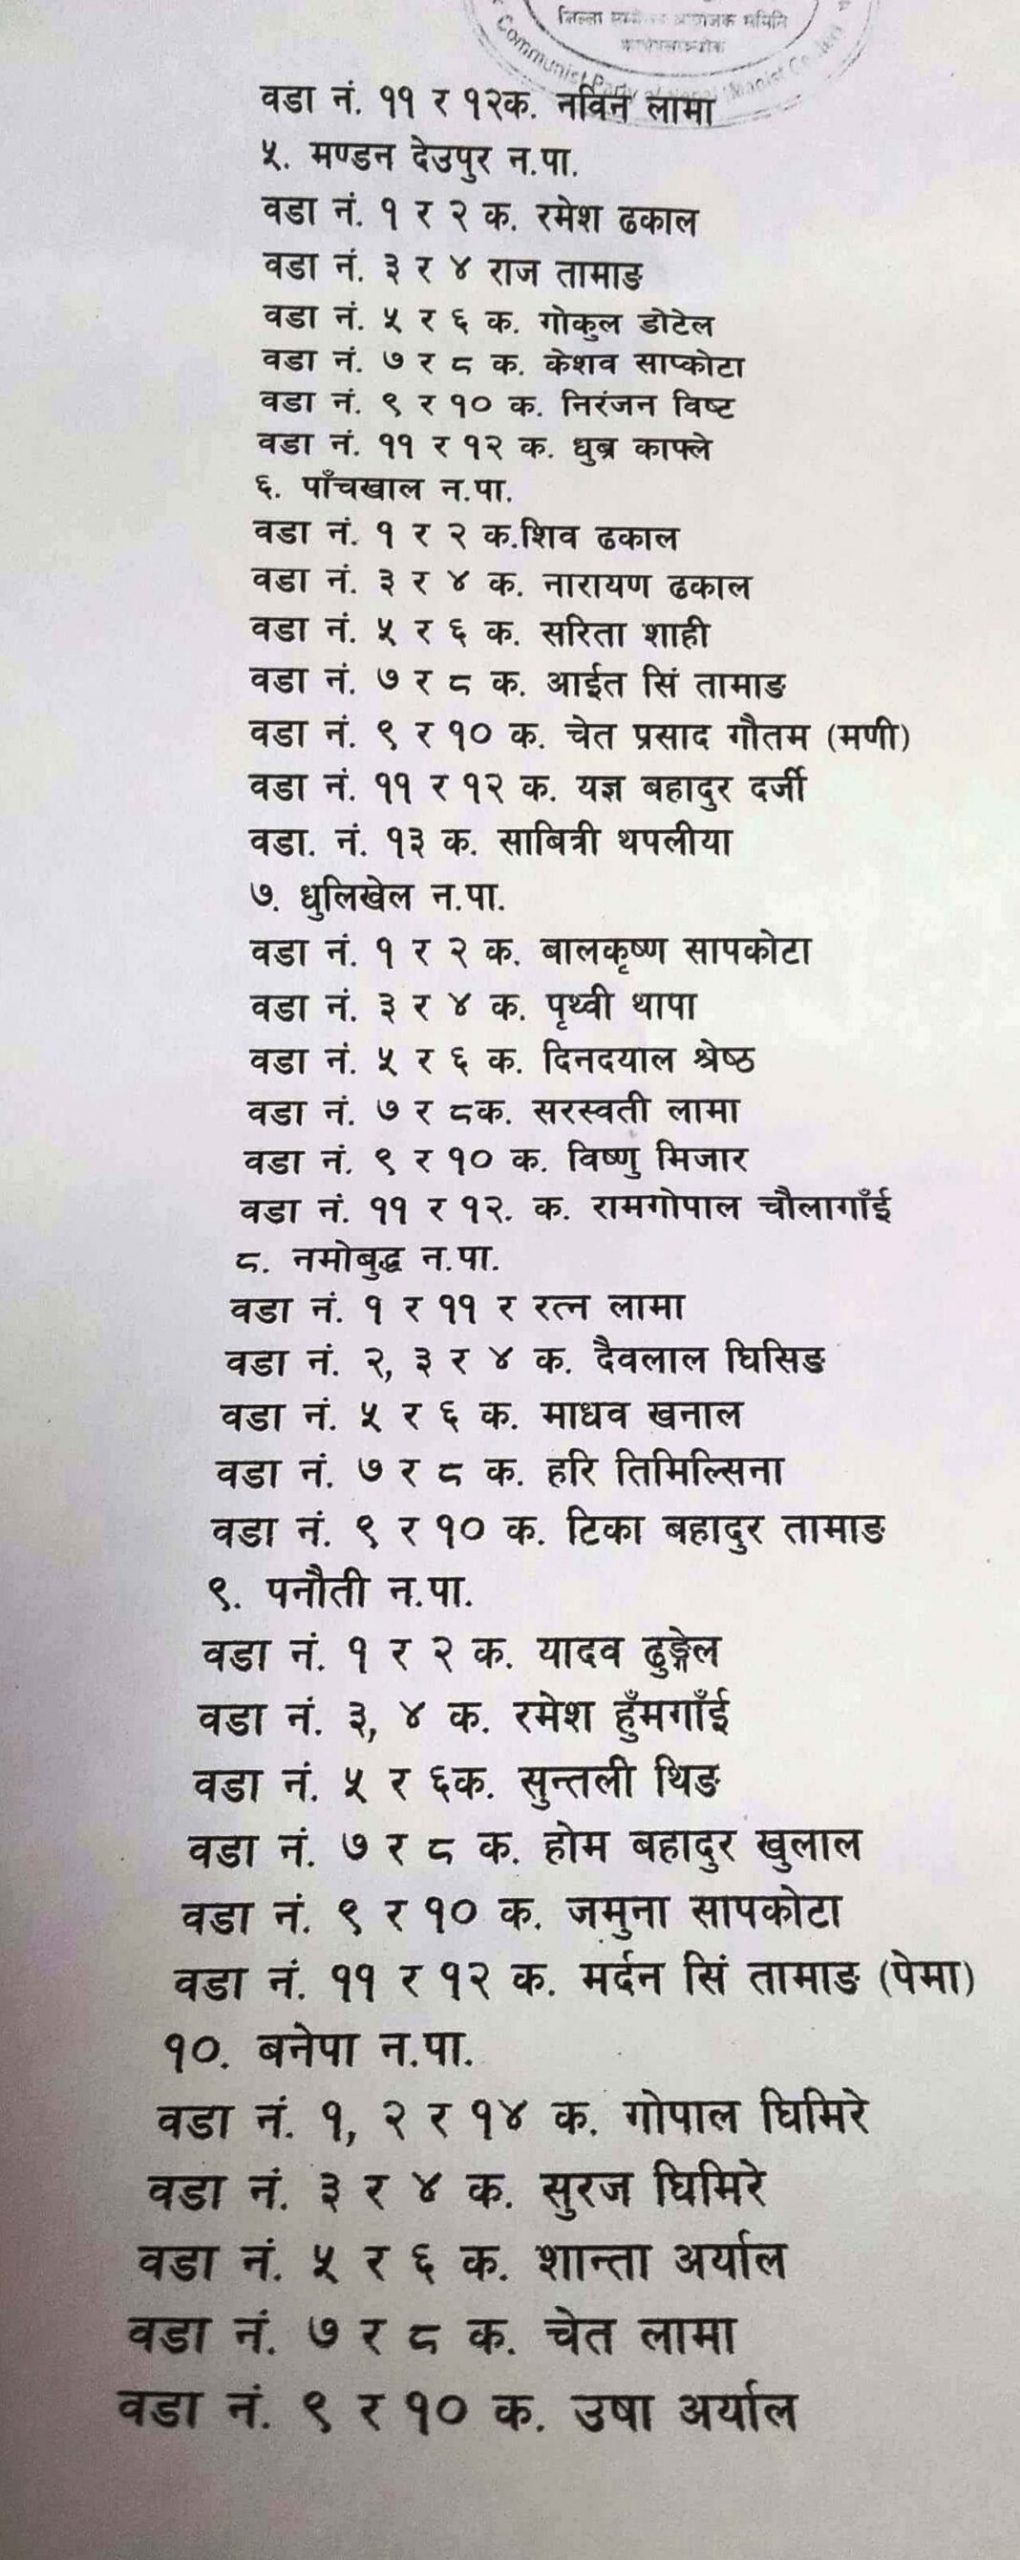 जिल्ला
समिति
Communist Party
वडा नं. ११ र १२क. नविन लामा
५. मण्डन देउपुर न.पा.
वडा नं. १ र २ क. रमेश ढकाल
वडा नं. ३ र ४ राज तामाङ
वडा नं. ५ र ६ क. गोकुल डोटेल
वडा नं. ७ र ८ क. केशव साप्कोटा
वडा नं. ९ र १० क. निरंजन विष्ट
वडा नं. ११ र १२ क. धुब्र काफ्ले
६. पाँचखाल न.पा.
वडा नं. १ र २ क.शिव ढकाल
वडा नं. ३ र ४ क. नारायण ढकाल
वडा नं. ५ र ६ क. सरिता शाही
वडा नं. ७ र ८ क. आईत सिं तामाङ
वडा नं. ९ र १० क. चेत प्रसाद गौतम (मणी)
वडा नं. ११ र १२ क. यज्ञ बहादुर दर्जी
वडा. नं. १३ क. साबित्री थपलीया
७. धुलिखेल न.पा.
वडा नं. १ र २ क. बालकृष्ण सापकोटा
वडा नं. ३ र ४ क. पृथ्वी थापा
वडा नं. ५ र ६ क. दिनदयाल श्रेष्ठ
वडा नं. ७ र ८क. सरस्वती लामा
वडा नं. ९ र १० क. विष्णु मिजार
वडा नं. ११ र १२. क. रामगोपाल चौलागाँई
८. नमोबुद्ध न.पा.
वडा नं. १ र ११ र रत्न लामा
वडा नं. २, ३ र ४ क. दैवलाल घिसिङ
वडा नं. ५ र ६ क. माधव खनाल
वडा नं. ७ र ८ क. हरि तिमिल्सिना
वडा नं. ९ र १० क. टिका बहादुर तामाङ
९. पनौती न.पा.
वडा नं. १ र २ क. यादव ढुङ्गेल
वडा नं. ३, ४ क. रमेश हुँमगाँई
वडा नं. ५ र ६क. सुन्तली थिङ
वडा नं. ७ र ८ क. होम बहादुर खुलाल
वडा नं. ९ र १० क. जमुना सापकोटा
वडा नं. ११ र १२ क. मर्दन सिं तामाङ (पेमा)
१०. बनेपा न.पा.
वडा नं. १, २ र १४ क. गोपाल घिमिरे
वडा नं. ३ र ४ क. सुरज घिमिरे
वडा नं. ५ र ६ क. शान्ता अर्याल
वडा नं. ७ र ८ क. चेत लामा
वडा नं. ९ र १० क. उषा अर्याल